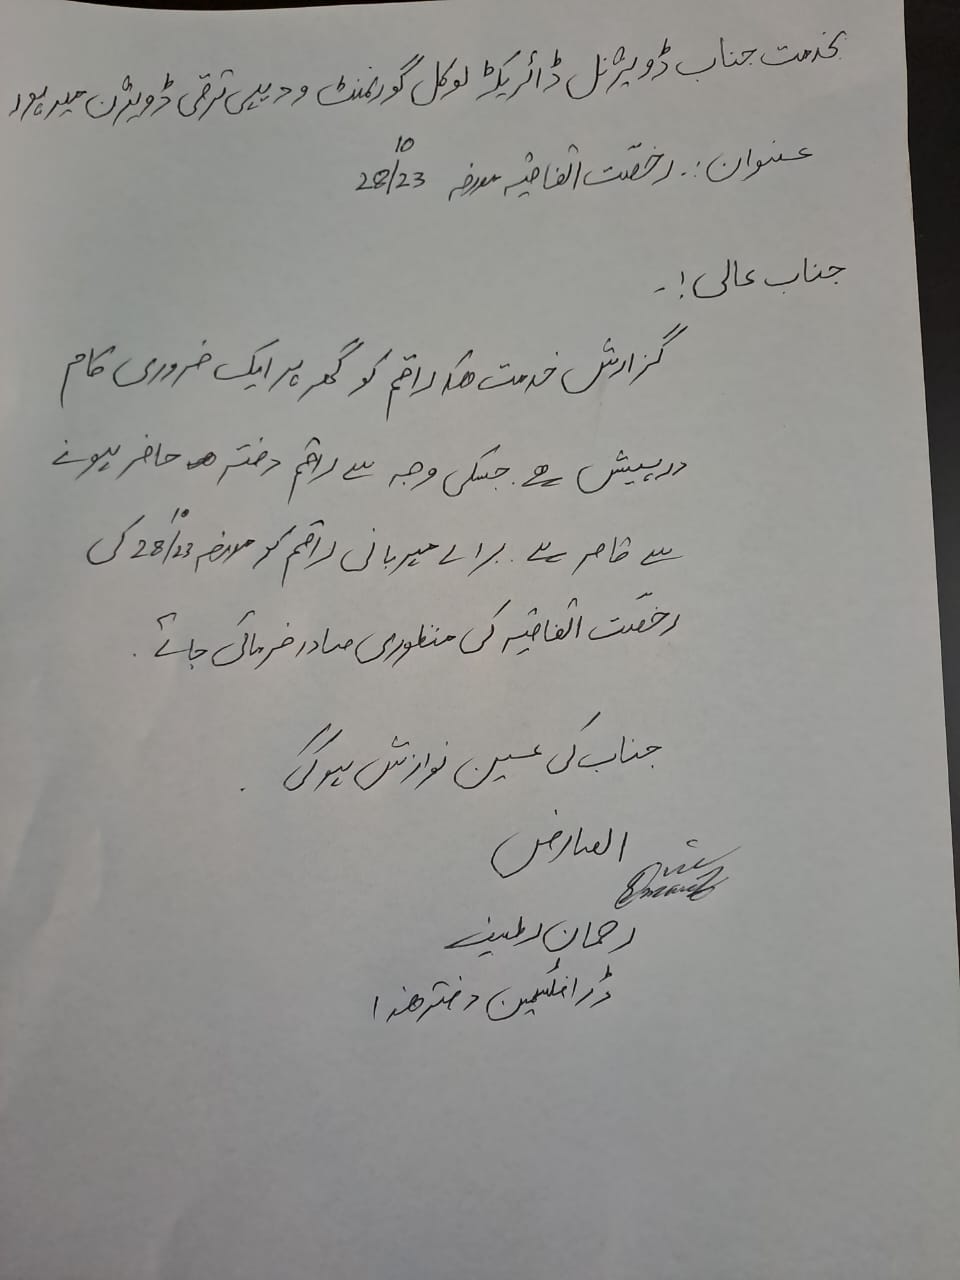 بخدمت جناب ڈویژنل ڈائریکٹر لوکل گورنمنٹ و دیہی ترقی ڈویژن میرپور
عنوان:۔ رخصت اتفاقیہ مورخہ 28/10/23
جناب عالی!۔
گزارش خدمت ہیکہ راقم کو گھر پر ایک ضروری کام
درپیش ہے۔ جسکی وجہ سے راقم دفتر حاضر ہونے
سے قاصر ہے۔ برائے مہربانی راقم کو مورخہ 28/10/23 کی
رخصت اتفاقیہ کی منظوری صادر فرمائی جائے۔
جناب کی عین نوازش ہوگی۔
العارض
رحمان لطیف
ڈرافٹسمین دفتر ھذا